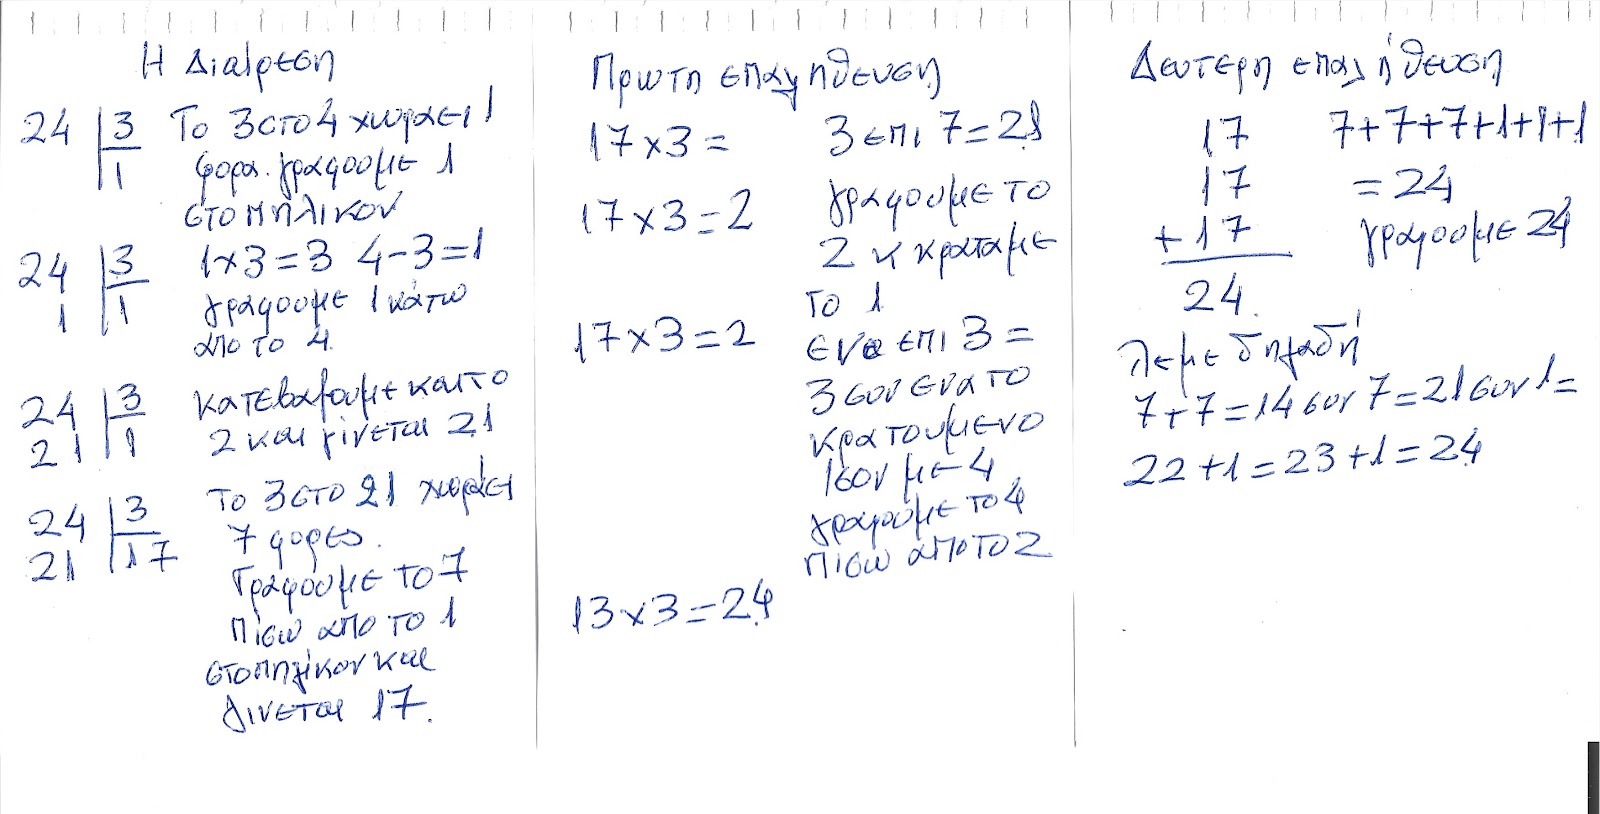 Η Διαίρεση
24 3 Το 3 στο 4 χωραει 1
1 φορα. γραφουμε 1
στο πηλικον
24 3 1×3=3 4-3=1
1 1 γραφουμε 1 κάτω
απο το 4.
24 3 κατεβαζουμε και το
21 1 2 και γίνεται 21
24 3 το 3 στο 21 χωράει
21 17 7 φορες.
Γραφουμε το 7
πίσω απο το 1
στο πηλίκον και
γινεται 17.
Πρωτη επαληθευση
17×3= 3 επι 7=21
17×3=2 γραφουμε το
2 κ κραταμε
το 1
17×3=2 ενα επι 3=
3 συν ενα το
κρατουμενο
ισον με 4
γραφουμε το 4
πισω απο το 2
13×3=24
Δευτερη επαλήθευση
17 7+7+7+1+1+1
17 =24
+17 γραφουμε 24
24.
λεμε δηλαδή
7+7=14 συν 7=21 συν 1=
22+1=23+1=24